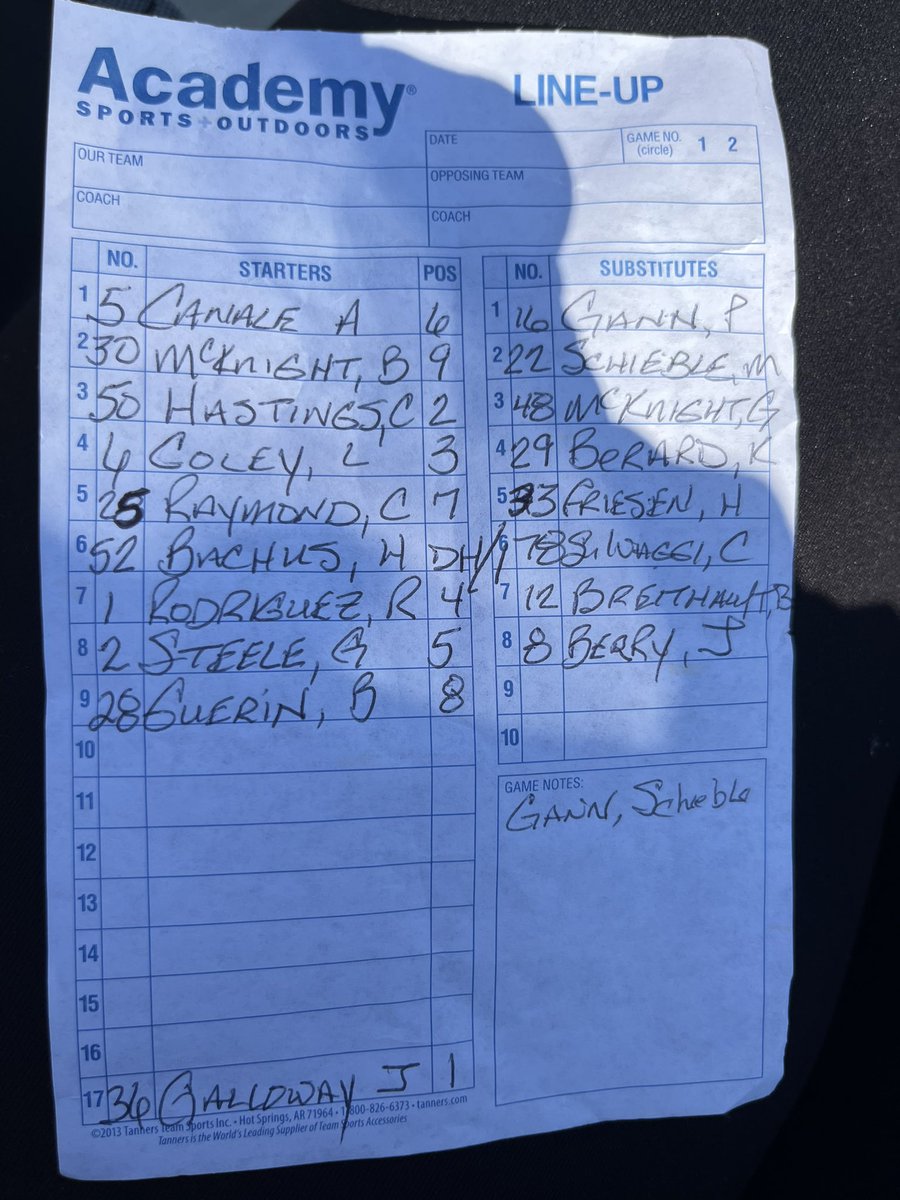 Academy®
SPORTS+OUTDOORS
LINE-UP
OUR TEAM
COACH
DATE
GAME NO. (circle) 1 2
OPPOSING TEAM
COACH
NO. STARTERS POS
1 5 CANALE A 6
2 30 McKNIGHT, B 9
3 50 HASTINGS, C 2
4 4 COLEY, L 3
5 25 RAYMOND, C 7
6 52 BACHUS, H DH/
7 1 RODRIGUEZ, R 4
8 2 STEELE, G 5
9 28 GUERIN, B 8
10
11
12
13
14
15
16
17 36 GALLOWAY J 1
NO. SUBSTITUTES
1 16 GANN, P
2 22 SCHIEBLE, M
3 48 McKNIGHT, G
4 29 BERARD, K
5 33 FRIESEN, H
6 78
7 12 BREITHAUPT, B
8 8 BERRY, J
9
10
GAME NOTES:
GANN, Schieble
©2013 Tanners Team Sports Inc. • Hot Springs, AR 71964 • 1-800-826-6373 • tanners.com
Tanners is the World's Leading Supplier of Team Sports Accessories